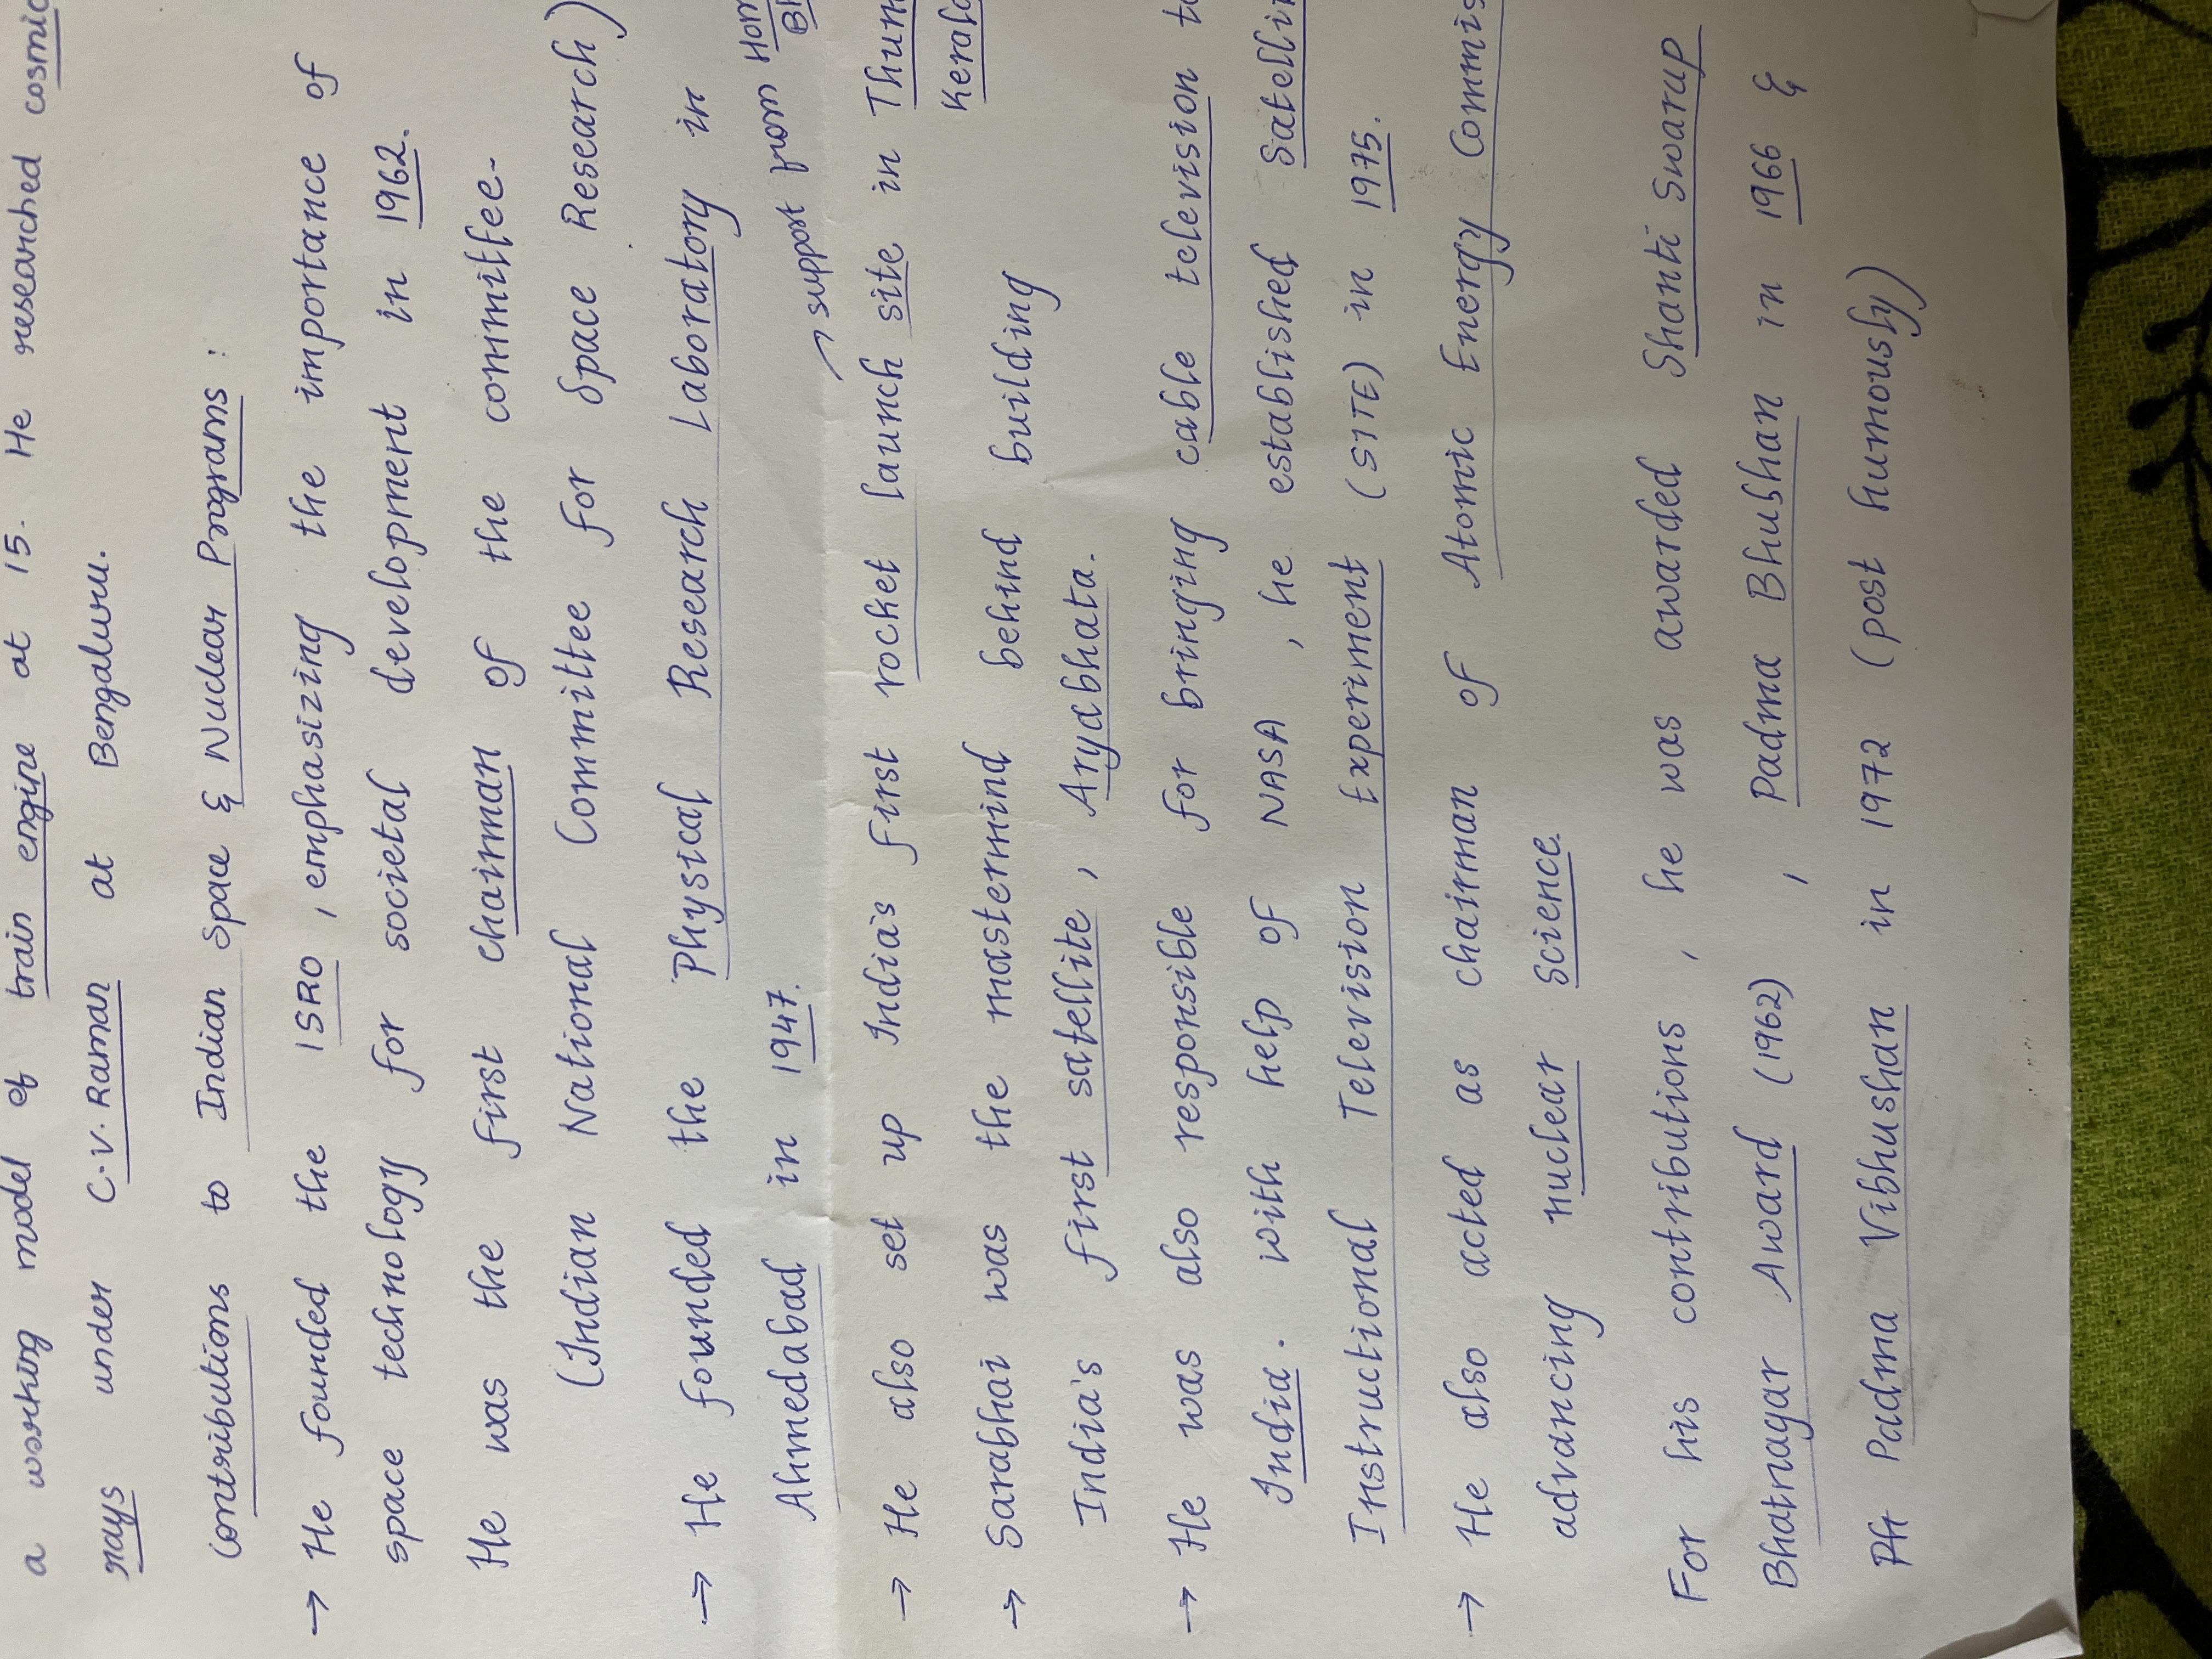 a working model of train engine at 15. He researched cosmic
rays under C.V. Raman at Bengaluru.
Contributions to Indian Space & Nuclear Programs :
→ He founded the ISRO, emphasizing the importance of
space technology for societal development in 1962.
He was the first chairman of the committee-
(Indian National Committee for Space Research)
→ He founded the Physical Research Laboratory in
Ahmedabad in 1947.
→ support from
→ He also set up India's first rocket launch site in
→ Sarabhai was the mastermind behind building
India's first satellite, Aryabhata.
→ He was also responsible for bringing cable television to
India. With help of NASA, he established
Instructional Television Experiment (SITE) in 1975.
→ He also acted as chairman of Atomic Energy
advancing nuclear science.
For his contributions, he was awarded Shanti Swarup
Bhatnagar Award (1962), Padma Bhushan in 1966 &
Padma Vibhushan in 1972 (post humously)